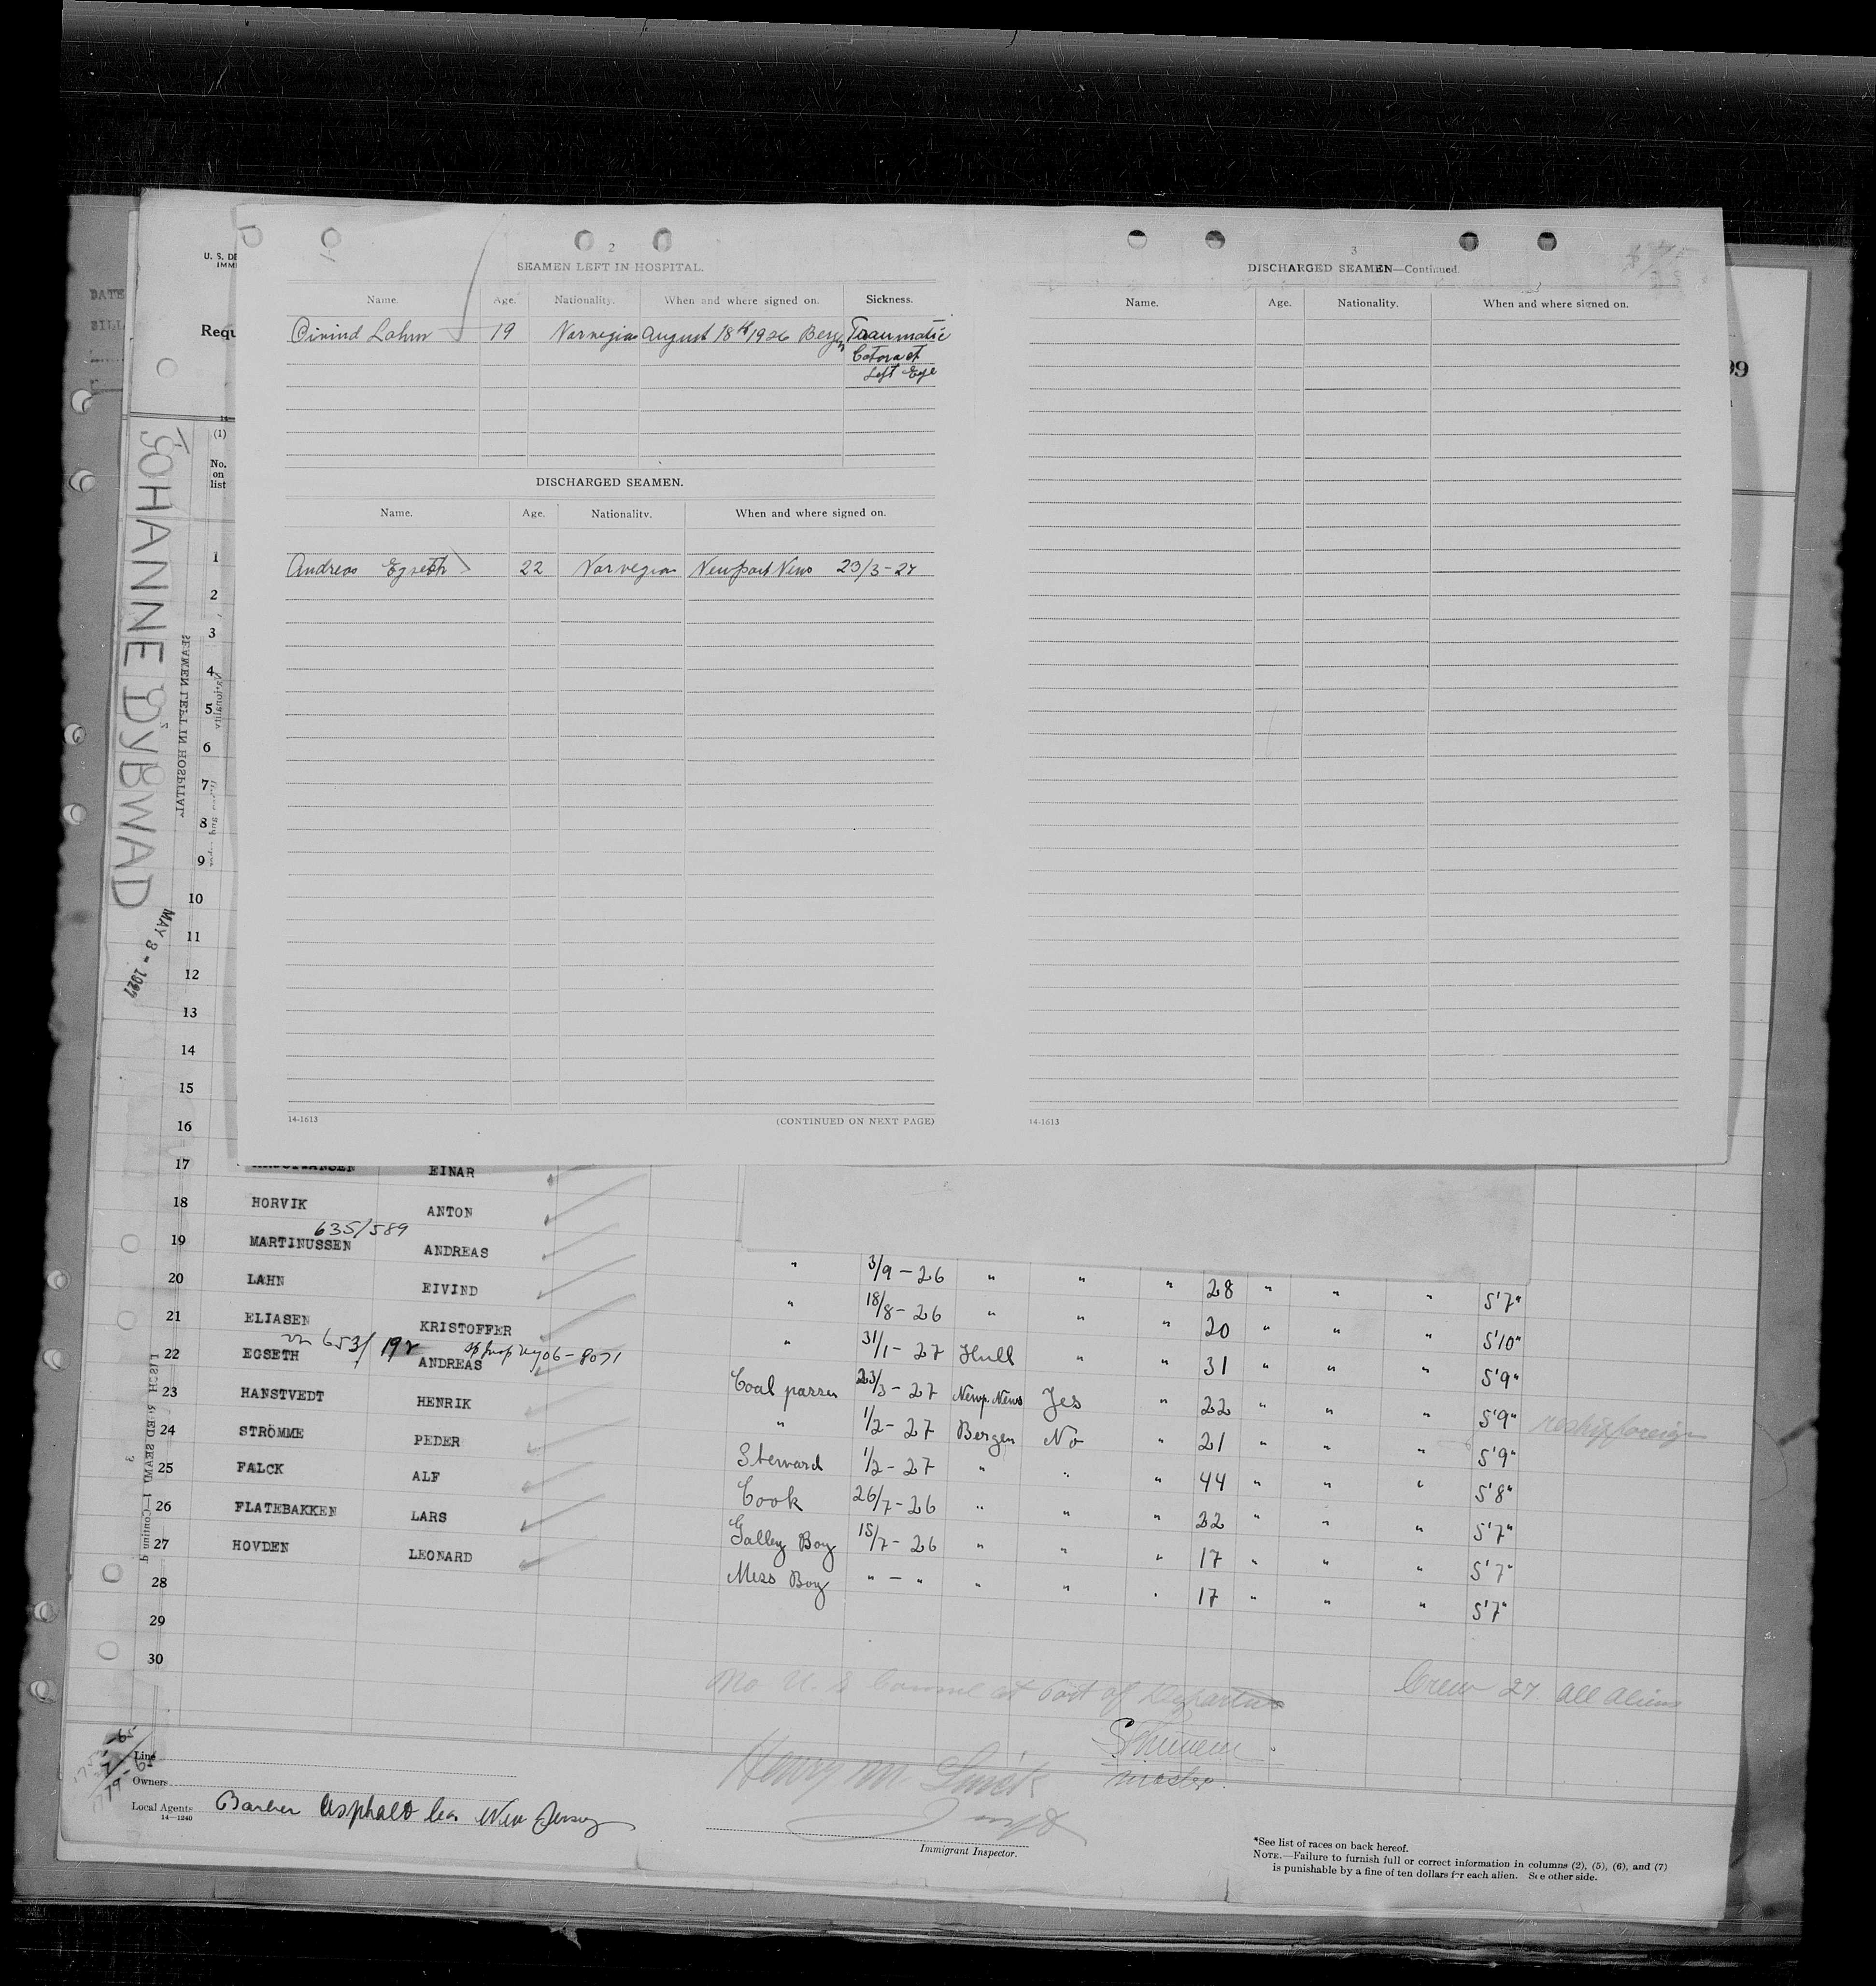 2
SEAMEN LEFT IN HOSPITAL.
Name. Age. Nationality. When and where signed on. Sickness.
Oivind Lahn 19 Norwegian August 18th 1926 Bergen Traumatic
Cataract
Left Eye
DISCHARGED SEAMEN.
Name. Age. Nationality. When and where signed on.
Andreas Egseth 22 Norwegian Newport News 23/3-27
14-1613
(CONTINUED ON NEXT PAGE)
3
DISCHARGED SEAMEN—Continued.
Name. Age. Nationality. When and where signed on.
14-1613
U. S. DE
IMMI
DATE
BILL
Requ
99
(1)
No.
on
list
JOHANNE DYBWAD
MAY 8 - 1927
SEAMEN LEFT IN HOSPITAL
1
2
3
4
5
6
7
8
9
10
11
12
13
14
15
16
17 EINAR
18 HORVIK ANTON
635/589
19 MARTINUSSEN ANDREAS
20 LAHN EIVIND " 3/9-26 " " " 28 " " " 5'7"
21 ELIASEN KRISTOFFER " 18/8-26 " " " 20 " " " 5'10"
653/192 06-8071
22 EGSETH ANDREAS " 31/1-27 Hull " " 31 " " " 5'9"
23 HANSTVEDT HENRIK Coal passer 23/3-27 Newp. News Yes " 22 " " " 5'9" reship foreign
24 STRÖMME PEDER " 1/2-27 Bergen No " 21 " " " 5'9"
25 FALCK ALF Steward 1/2-27 " " " 44 " " " 5'8"
26 FLATEBAKKEN LARS Cook 26/7-26 " " " 22 " " " 5'7"
27 HOVDEN LEONARD Galley Boy 15/7-26 " " " 17 " " " 5'7"
28 Mess Boy " - " " " " 17 " " " 5'7"
29
30
No U.S Consul at Port of Departure
Crew 27 all aliens
Line
Owners
Local Agents Barber Asphalt Co. New Jersey
14—1240
Henry M.
master.
Immigrant Inspector.
*See list of races on back hereof.
NOTE.—Failure to furnish full or correct information in columns (2), (5), (6), and (7)
is punishable by a fine of ten dollars for each alien. See other side.